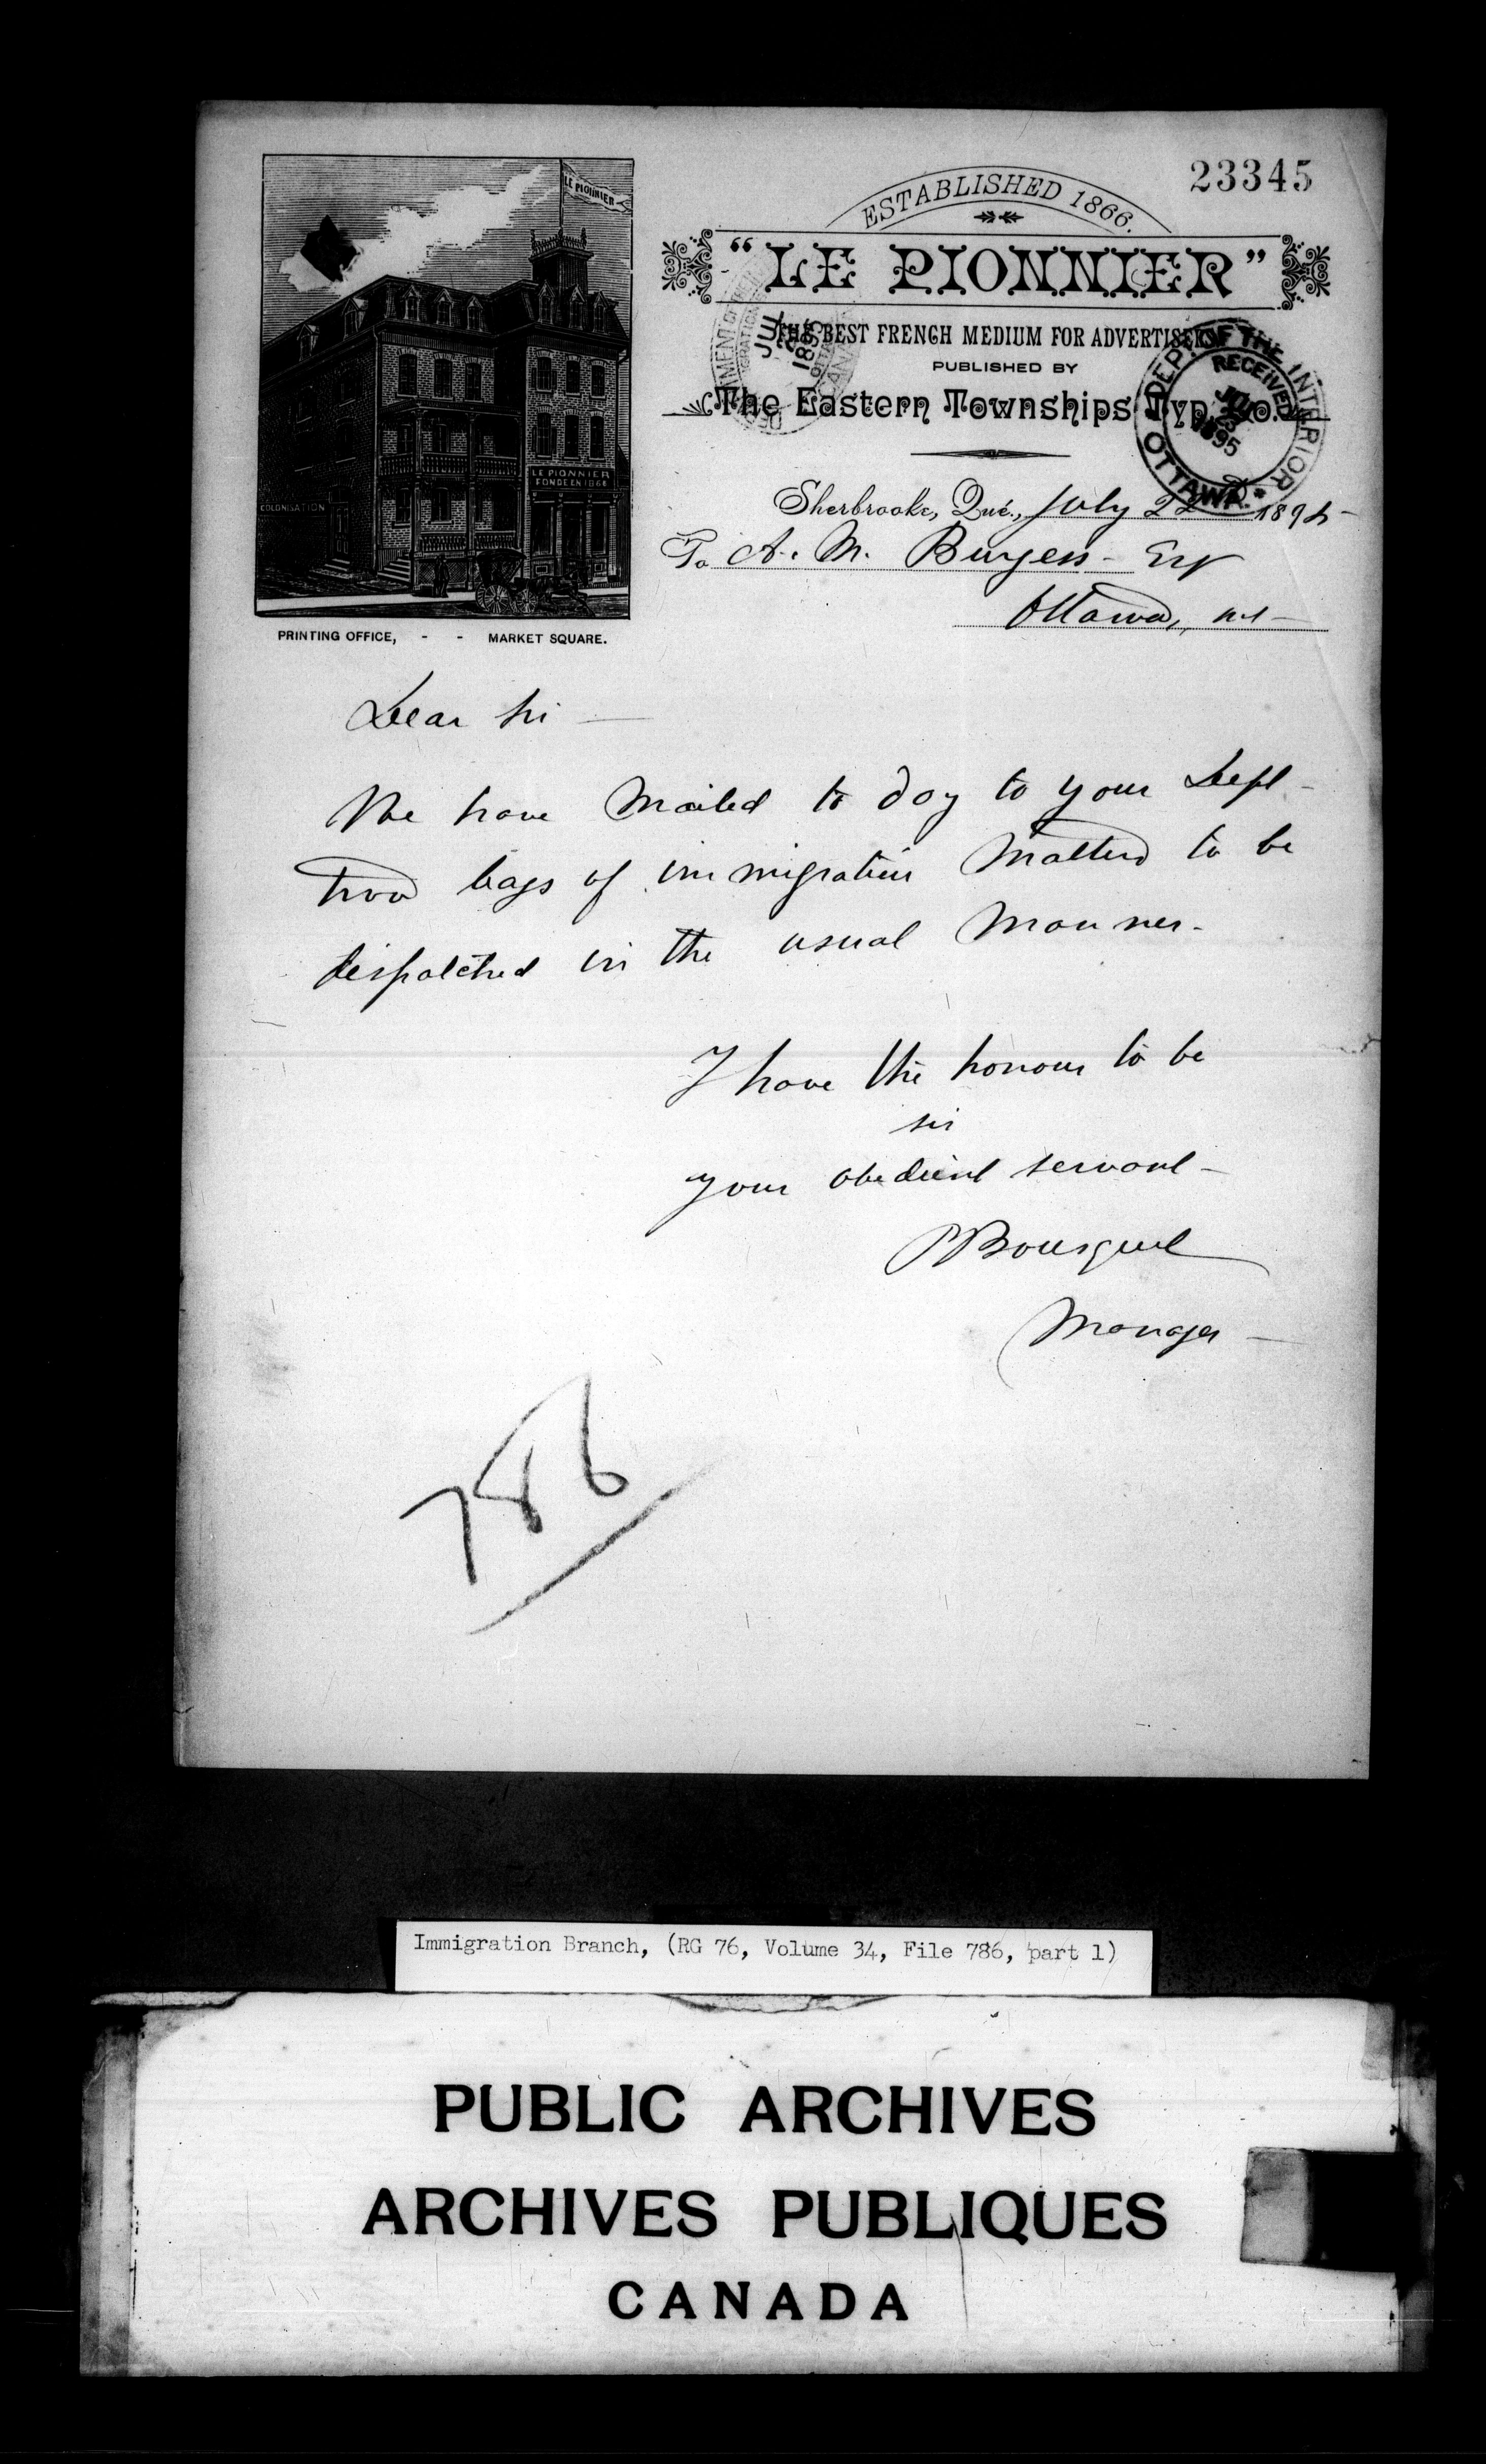 23345
LE PIONNIER
ESTABLISHED 1866.
"LE PIONNIER"
THE BEST FRENCH MEDIUM FOR ADVERTISERS
PUBLISHED BY
The Eastern Townships Typ. Co.
DEPT. OF THE INTERIOR
RECEIVED
JUL 23 1895
OTTAWA
JUL
1895
LE PIONNIER
FONDE EN 1866
COLONISATION
PRINTING OFFICE, - - MARKET SQUARE.
Sherbrooke, Qué., July 22 1895
To A. M. Burgess Esq
Ottawa, Ont
Dear Sir
We have mailed to day to your Dept
two bags of immigration matters to be
dispatched in the usual manner.
I have the honour to be
sir
your obedient servant
P Bousquet
Manager
786
Immigration Branch, (RG 76, Volume 34, File 786, part 1)
PUBLIC ARCHIVES
ARCHIVES PUBLIQUES
CANADA